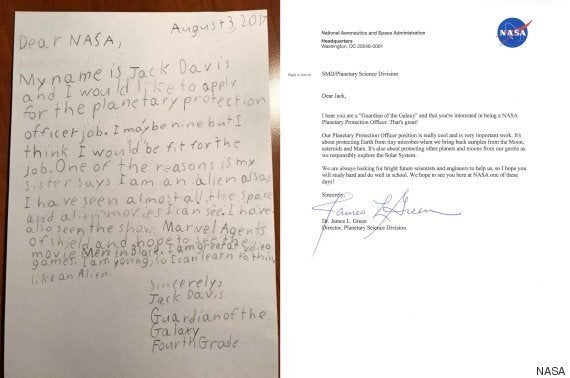 August 3, 2017
Dear NASA,
My name is Jack Davis
and I would like to apply
for the planetary protection
officer job. I may be nine but I
think I would be fit for the
job. One of the reasons is my
sister says I am an alien also
I have seen almost all the space
and alien movies I can see. I have
also seen the show Marvel Agents
of Shield and hope to see the
movie Men in Black. I am great at video
games. I am young, so I can learn to think
like an Alien.
Sincerely,
Jack Davis
Guardian of the
Galaxy
Fourth Grade
National Aeronautics and Space Administration
Headquarters
Washington, DC 20546-0001
NASA
Reply to Attn of:
SMD/Planetary Science Division
Dear Jack,
I hear you are a "Guardian of the Galaxy" and that you're interested in being a NASA
Planetary Protection Officer. That's great!
Our Planetary Protection Officer position is really cool and is very important work. It's
about protecting Earth from tiny microbes when we bring back samples from the Moon,
asteroids and Mars. It's also about protecting other planets and moons from our germs as
we responsibly explore the Solar System.
We are always looking for bright future scientists and engineers to help us, so I hope you
will study hard and do well in school. We hope to see you here at NASA one of these
days!
Sincerely,
James L Green
Dr. James L. Green
Director, Planetary Science Division
NASA